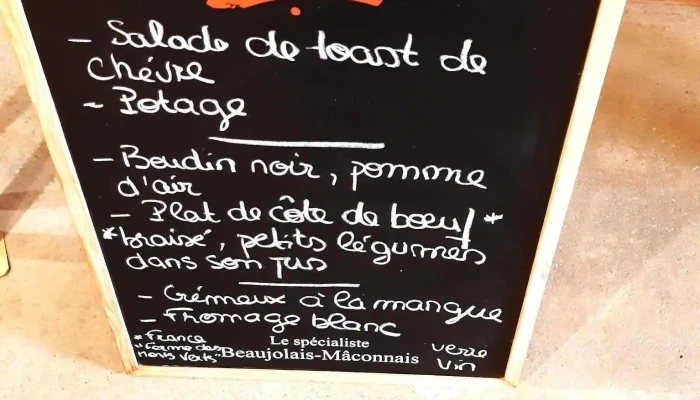 - Salade de toast de
chévre
- Potage
- Boudin noir, pomme
d'air
- Plat de côte de boeuf *
*braisé, petits légumes
dans son jus
- Crémeux à la mangue
- Fromage blanc
* France
"Ferme des
Monts Verts"
Le spécialiste
Beaujolais-Mâconnais
verre
vin